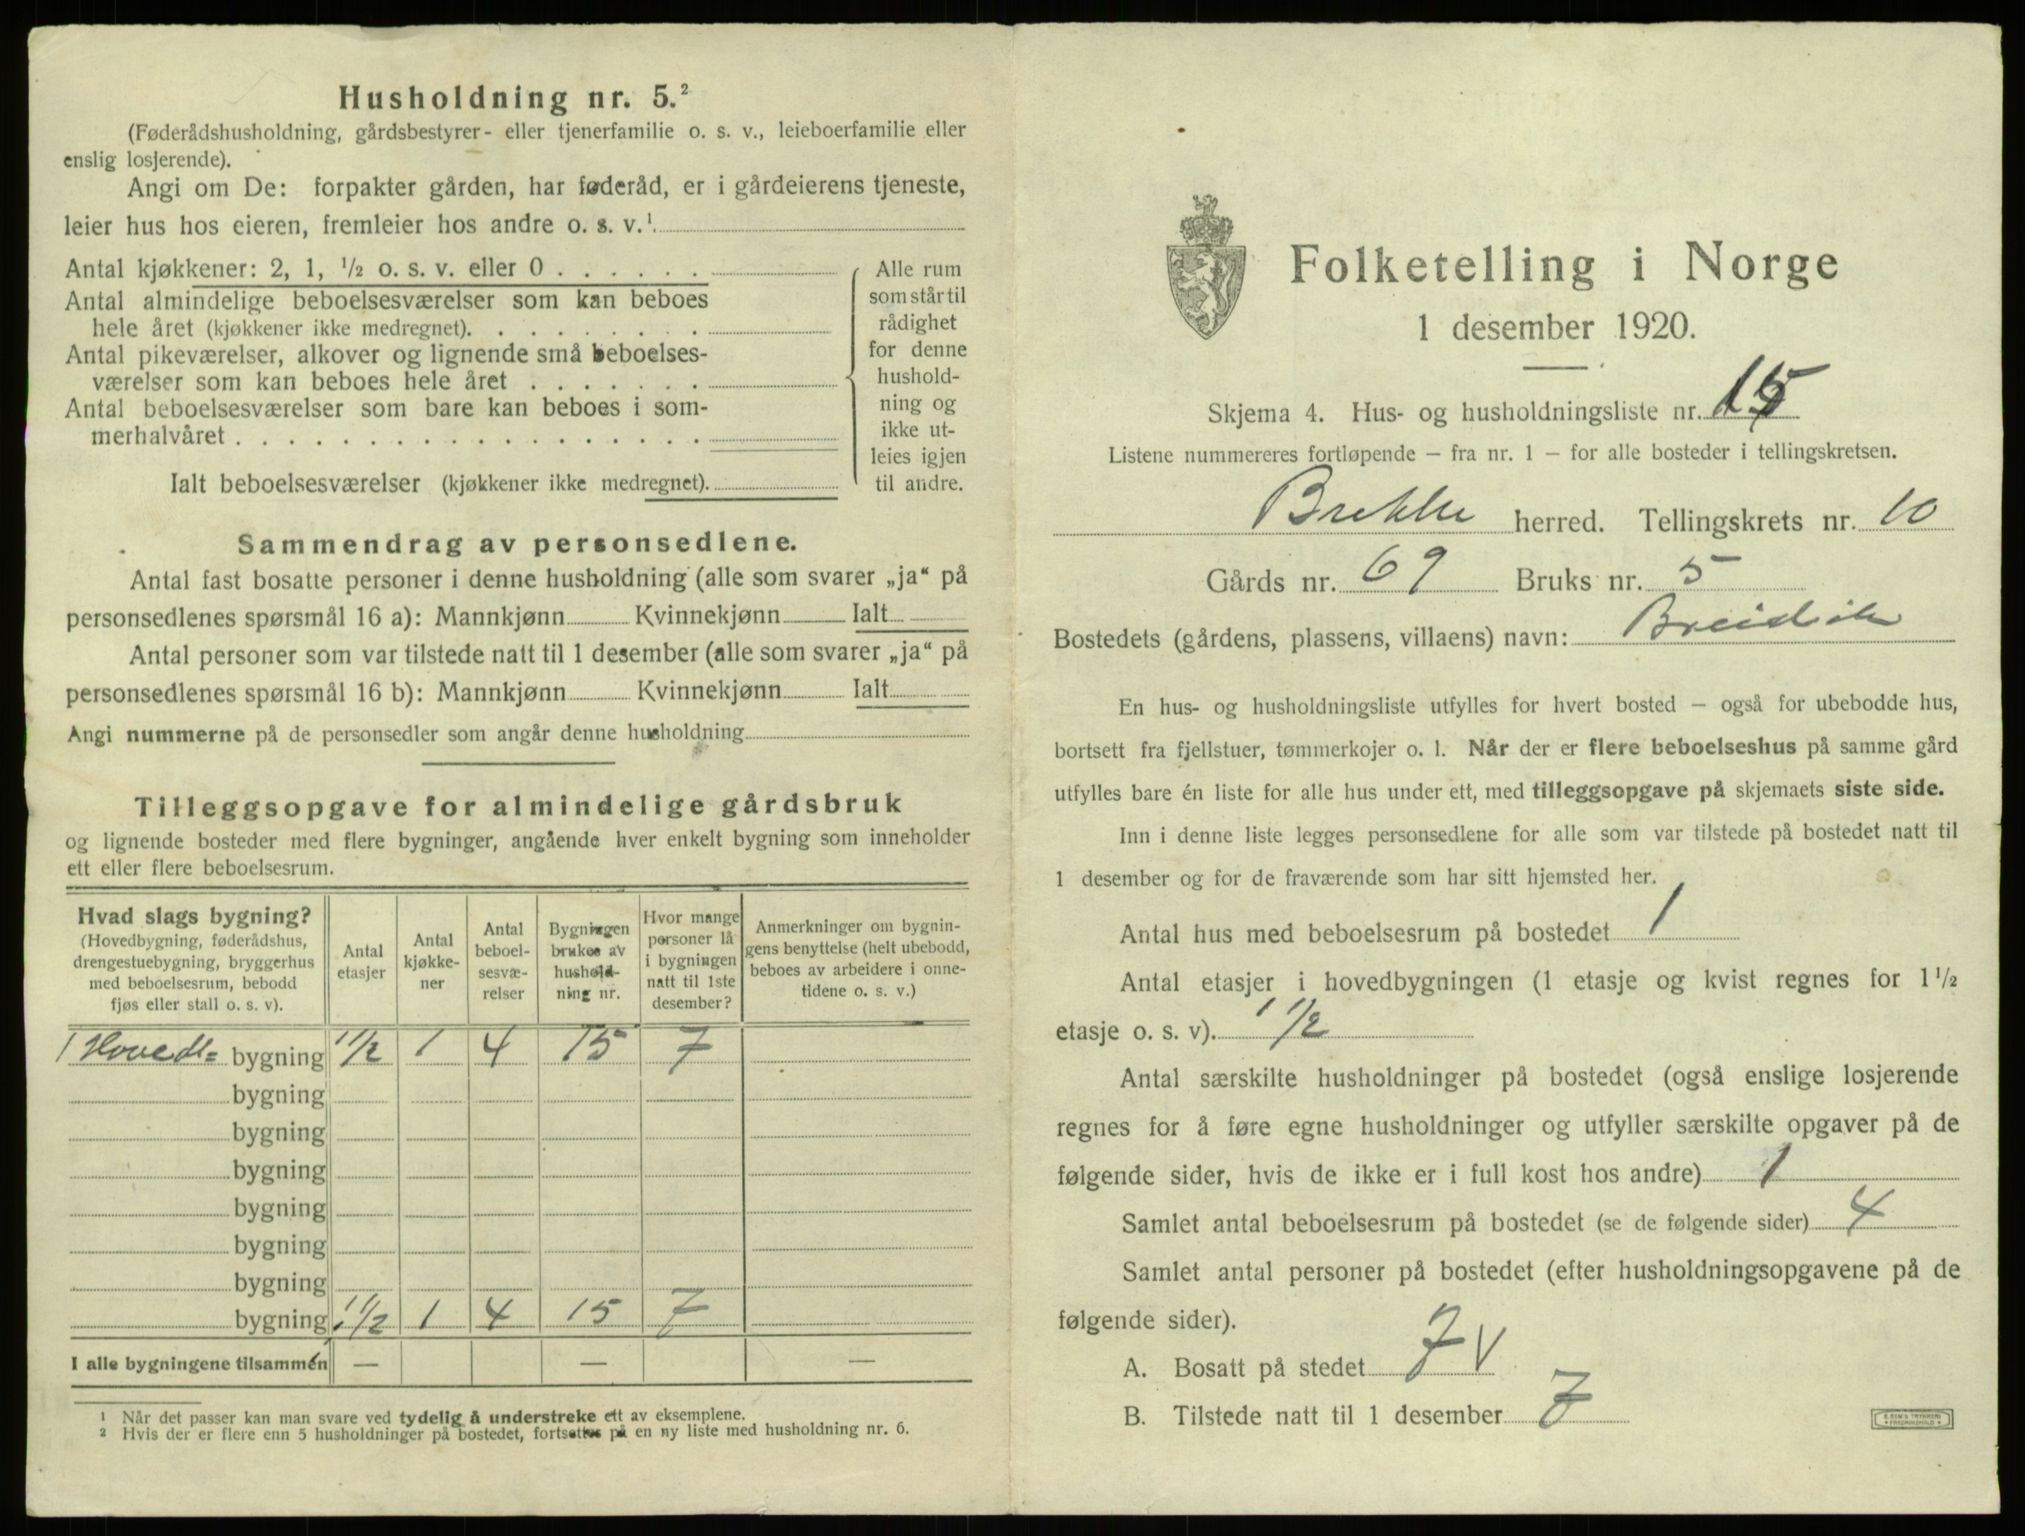 Husholdning nr. 5.²
(Føderådshusholdning, gårdsbestyrer- eller tjenerfamilie o. s. v., leieboerfamilie eller
enslig losjerende).
Angi om De: forpakter gården, har føderåd, er i gårdeierens tjeneste,
leier hus hos eieren, fremleier hos andre o. s. v.¹
Antal kjøkkener: 2, 1, ½ o. s. v. eller 0 . . . . . .
Antal almindelige beboelsesværelser som kan beboes
hele året (kjøkkener ikke medregnet). . . . . . . . .
Antal pikeværelser, alkover og lignende små beboelses-
værelser som kan beboes hele året . . . . . . .
Antal beboelsesværelser som bare kan beboes i som-
merhalvåret . . . . . . . . . . . . . . . . . .
Ialt beboelsesværelser (kjøkkener ikke medregnet).
Alle rum
som står til
rådighet
for denne
hushold-
ning og
ikke ut-
leies igjen
til andre.
Sammendrag av personsedlene.
Antal fast bosatte personer i denne husholdning (alle som svarer „ja“ på
personsedlenes spørsmål 16 a): Mannkjønn Kvinnekjønn Ialt
Antal personer som var tilstede natt til 1 desember (alle som svarer „ja“ på
personsedlenes spørsmål 16 b): Mannkjønn Kvinnekjønn Ialt
Angi nummerne på de personsedler som angår denne husholdning
Tilleggsopgave for almindelige gårdsbruk
og lignende bosteder med flere bygninger, angående hver enkelt bygning som inneholder
ett eller flere beboelsesrum.
Hvad slags bygning?
(Hovedbygning, føderådshus,
drengestuebygning, bryggerhus
med beboelsesrum, bebodd
fjøs eller stall o. s. v).
Antal
etasjer
Antal
kjøkke-
ner
Antal
beboel-
sesvæ-
relser
Bygningen
brukes av
hushold-
ning nr.
Hvor mange
personer lå
i bygningen
natt til 1ste
desember?
Anmerkninger om bygnin-
gens benyttelse (helt ubebodd,
beboes av arbeidere i onne-
tidene o. s. v.)
1 Hovedb= bygning 1½ 1 4 15 7
bygning
bygning
bygning
bygning
bygning
bygning
bygning 1½ 1 4 15 7
I alle bygningene tilsammen — — —
¹ Når det passer kan man svare ved tydelig å understreke ett av eksemplene.
² Hvis der er flere enn 5 husholdninger på bostedet, fortsettes på en ny liste med husholdning nr. 6.
Folketelling i Norge
1 desember 1920.
Skjema 4. Hus- og husholdningsliste nr. 15
Listene nummereres fortløpende – fra nr. 1 – for alle bosteder i tellingskretsen.
Brekke herred. Tellingskrets nr. 10
Gårds nr. 69 Bruks nr. 5
Bostedets (gårdens, plassens, villaens) navn:
En hus- og husholdningsliste utfylles for hvert bosted – også for ubebodde hus,
bortsett fra fjellstuer, tømmerkojer o. l. Når der er flere beboelseshus på samme gård
utfylles bare én liste for alle hus under ett, med tilleggsopgave på skjemaets siste side.
Inn i denne liste legges personsedlene for alle som var tilstede på bostedet natt til
1 desember og for de fraværende som har sitt hjemsted her.
Antal hus med beboelsesrum på bostedet 1
Antal etasjer i hovedbygningen (1 etasje og kvist regnes for 1½
etasje o. s. v). 1½
Antal særskilte husholdninger på bostedet (også enslige losjerende
regnes for å føre egne husholdninger og utfyller særskilte opgaver på de
følgende sider, hvis de ikke er i full kost hos andre) 1
Samlet antal beboelsesrum på bostedet (se de følgende sider) 4
Samlet antal personer på bostedet (efter husholdningsopgavene på de
følgende sider).
A. Bosatt på stedet 7 V
B. Tilstede natt til 1 desember 7